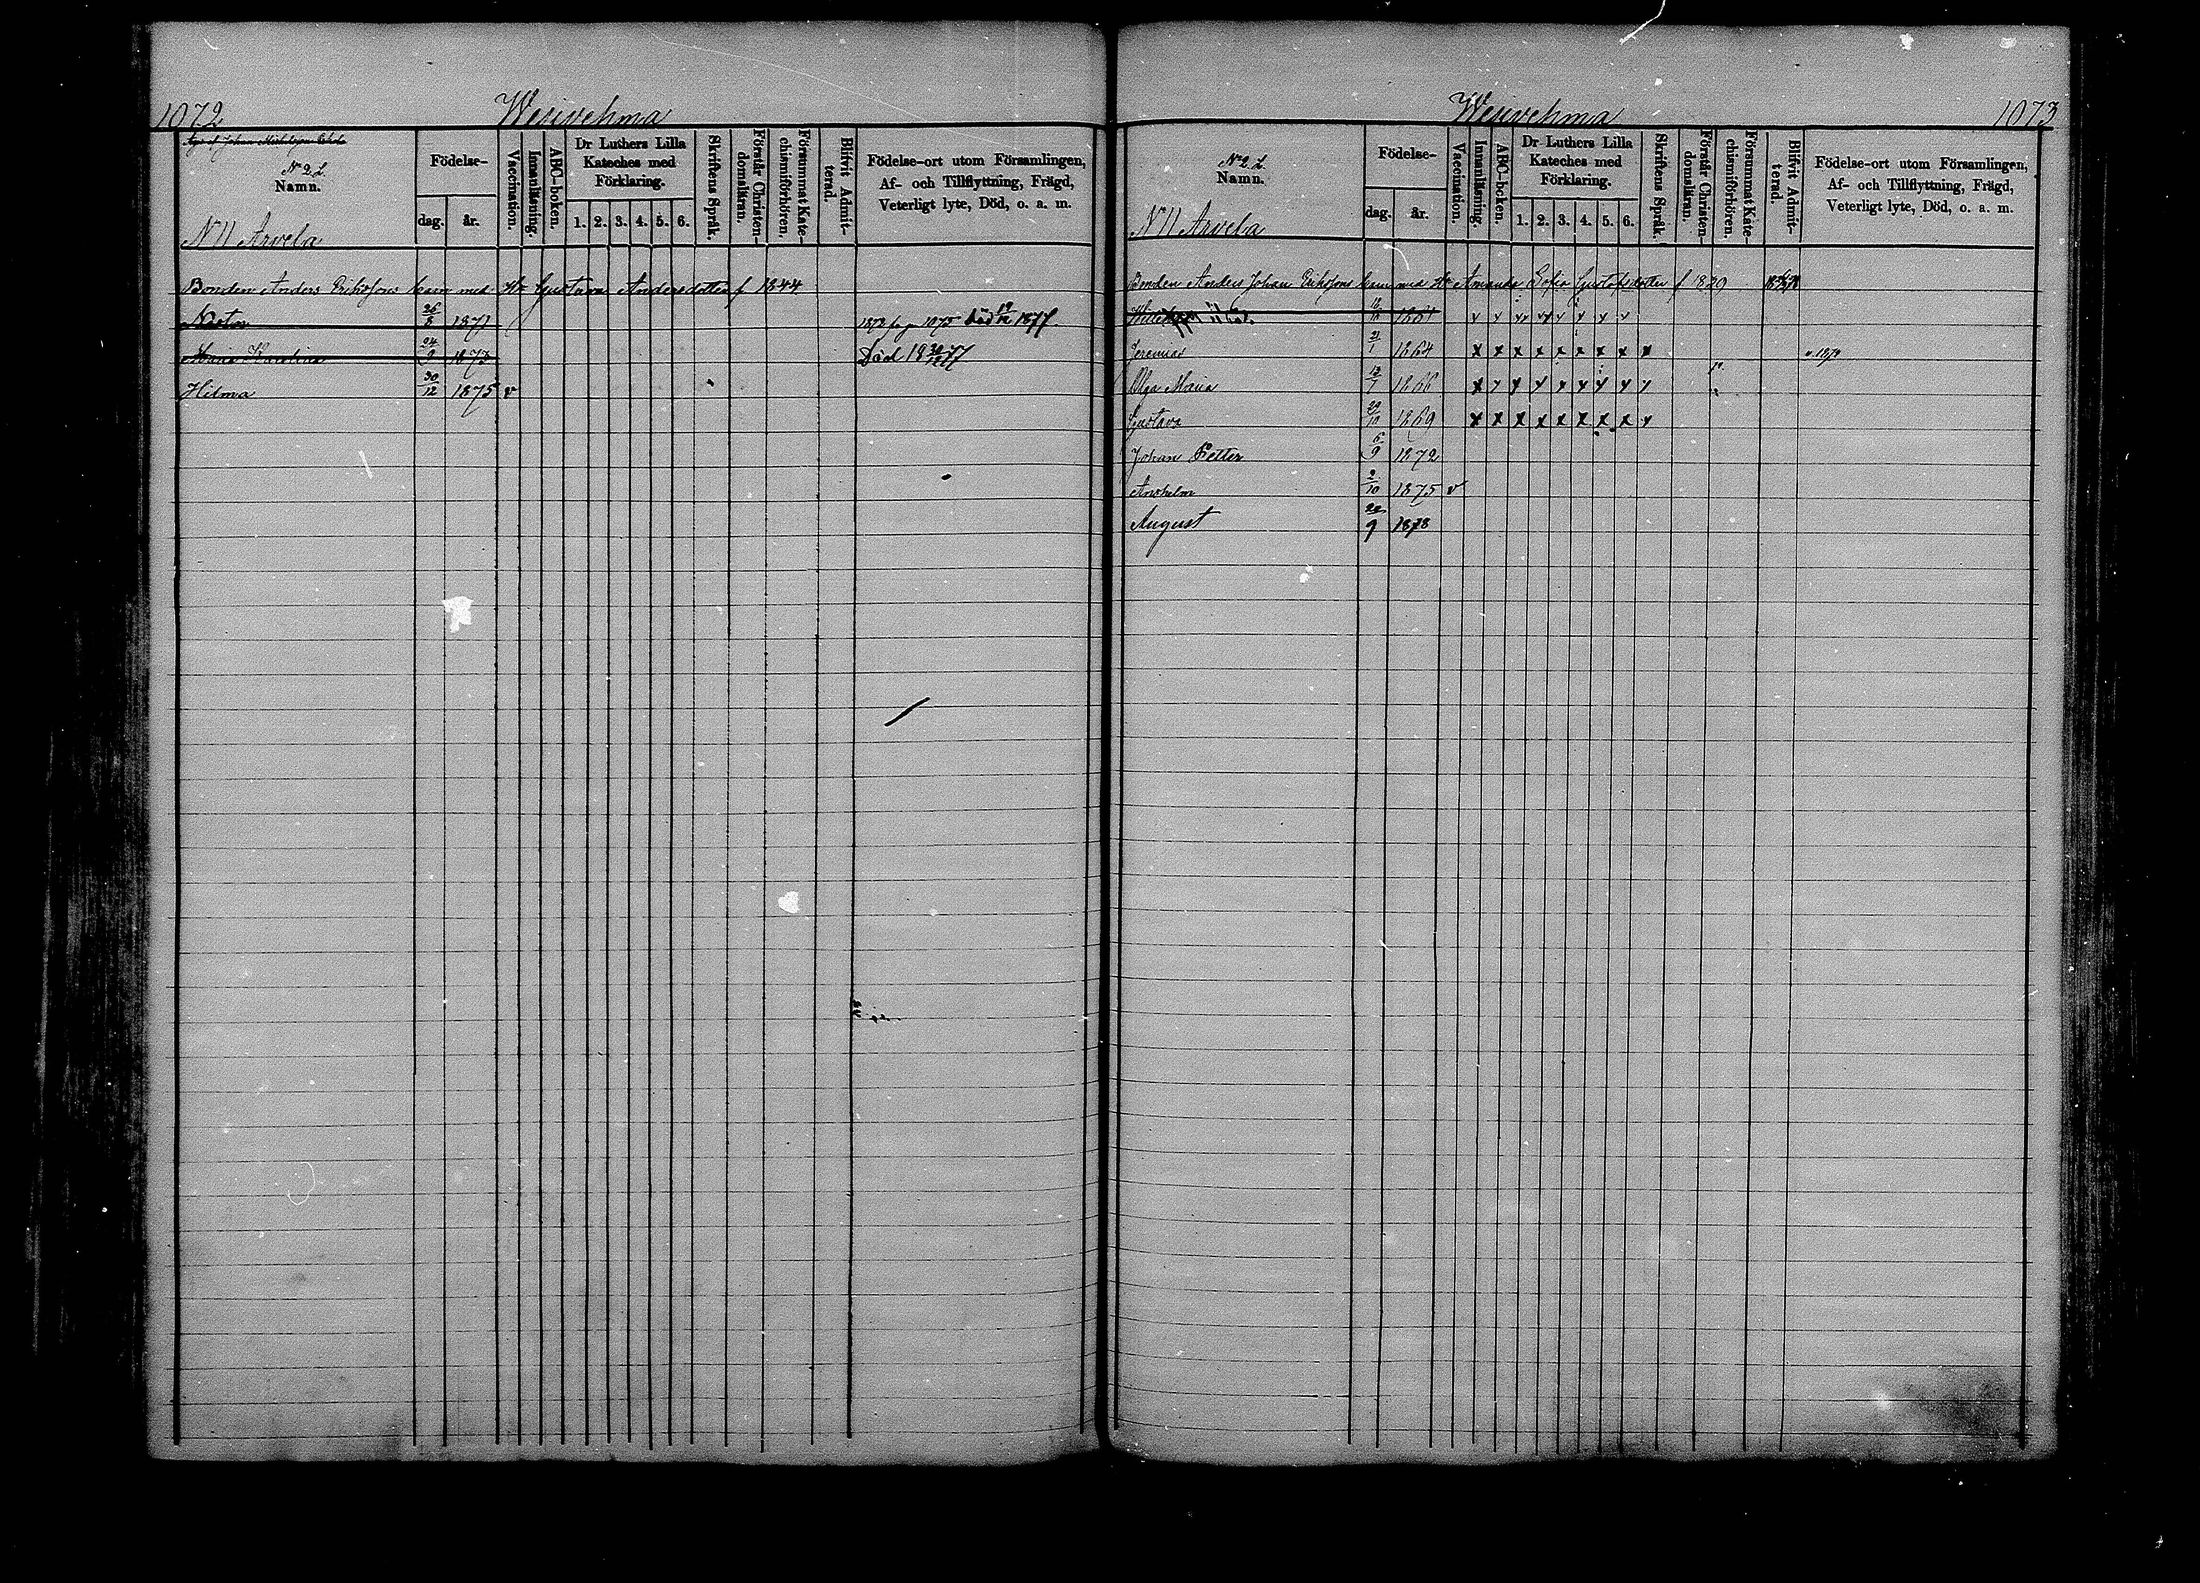 1072 Wesivehma
Nº 2. L.
Namn.
Födelse-
dag. år.
Vaccination.
Innanläsning.
ABC-boken.
Dr Luthers Lilla
Kateches med
Förklaring.
1. 2. 3. 4. 5. 6.
Skriftens Språk.
Förstår Christen-
domsläran.
Försummat Kate-
chismiförhören.
Blifvit Admit-
terad.
Födelse-ort utom Församlingen,
Af- och Tillflyttning, Frägd,
Veterligt lyte, Död, o. a. m.
Nº 11 Arvela
Bonden Anders Erikssons barn med Hu Gustava Andersdotter f 1844
26/8 1871 Död 19/12 1877.
Maria Karolina 24/9 1873 Död 18 77
Hilma 30/12 1875 v
Wesivehma 1073
Nº 2. L.
Namn.
Födelse-
dag. år.
Vaccination.
Innanläsning.
ABC-boken.
Dr Luthers Lilla
Kateches med
Förklaring.
1. 2. 3. 4. 5. 6.
Skriftens Språk.
Förstår Christen-
domsläran.
Försummat Kate-
chismiförhören.
Blifvit Admit-
terad.
Födelse-ort utom Församlingen,
Af- och Tillflyttning, Frägd,
Veterligt lyte, Död, o. a. m.
Nº 11 Arvela
Bonden Anders Johan Erikssons barn med Hu Amanda Sofia Gustafsdotter f 1820
1861 x x x x x x x x
Jeremias 21/1 1864 x x x x x x x x x
Olga Maria 13/7 1866 x x x x x x x x x
Gustava 29/10 1869 x x x x x x x x x
Johan Petter 6/9 1872
Anshelm 2/10 1875 v
August 22/9 1878